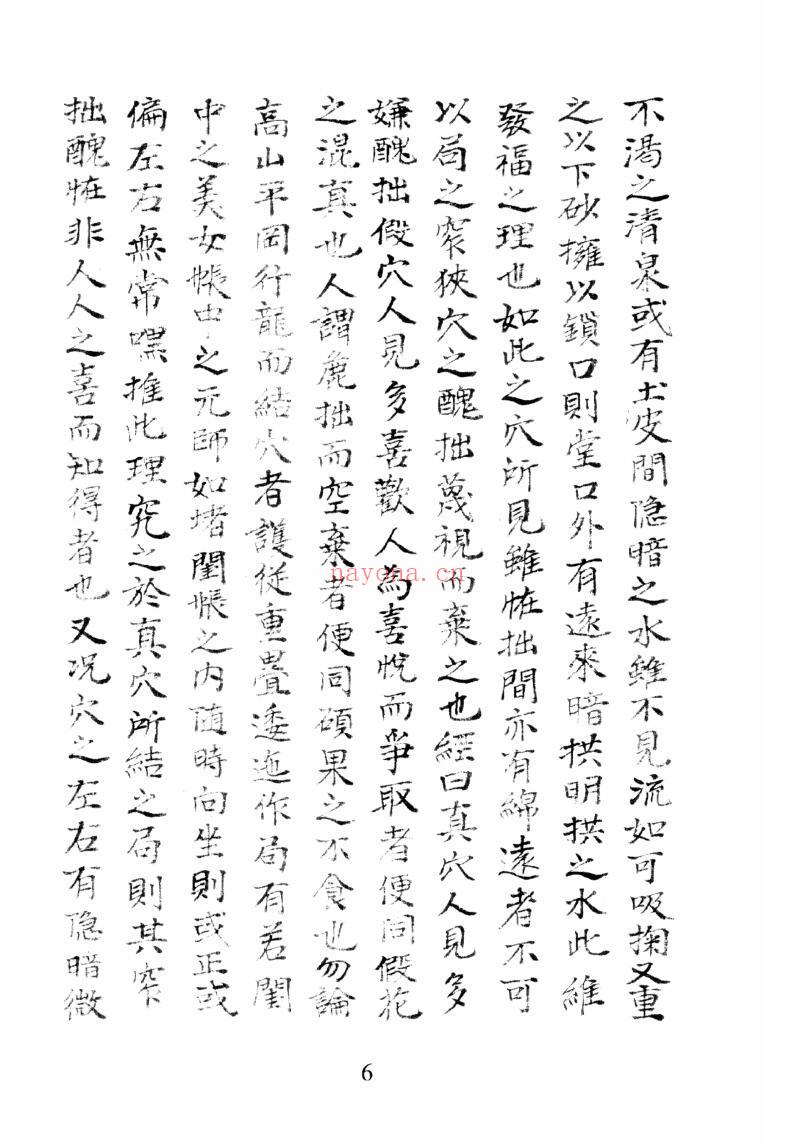 不渴之清泉或有土皮間隐暗之水雖不見流如可吸掬又重
之以下砂擁以鎖口則堂口外有遠來暗拱明拱之水此維
發福之理也如此之穴所見雖恠拙間亦有綿遠者不可
以局之窄狹穴之醜拙蔑視而棄之也經曰真穴人見多
嫌醜拙假穴人見多喜歡人為喜悅而爭取者便同假花
之混真也人謂麁拙而空棄者便同碩果之不食也勿論
高山平岡行龍而結穴者護從重疊逶迤作局有若閨
中之美女帳中之元師如堵闈帳之内随時向坐則或正或
偏左右無常嘿推此理究之於真穴所結之局則其窄
拙醜恠非人人之喜而知得者也又况穴之左右有隐暗微
nayona.cn
6